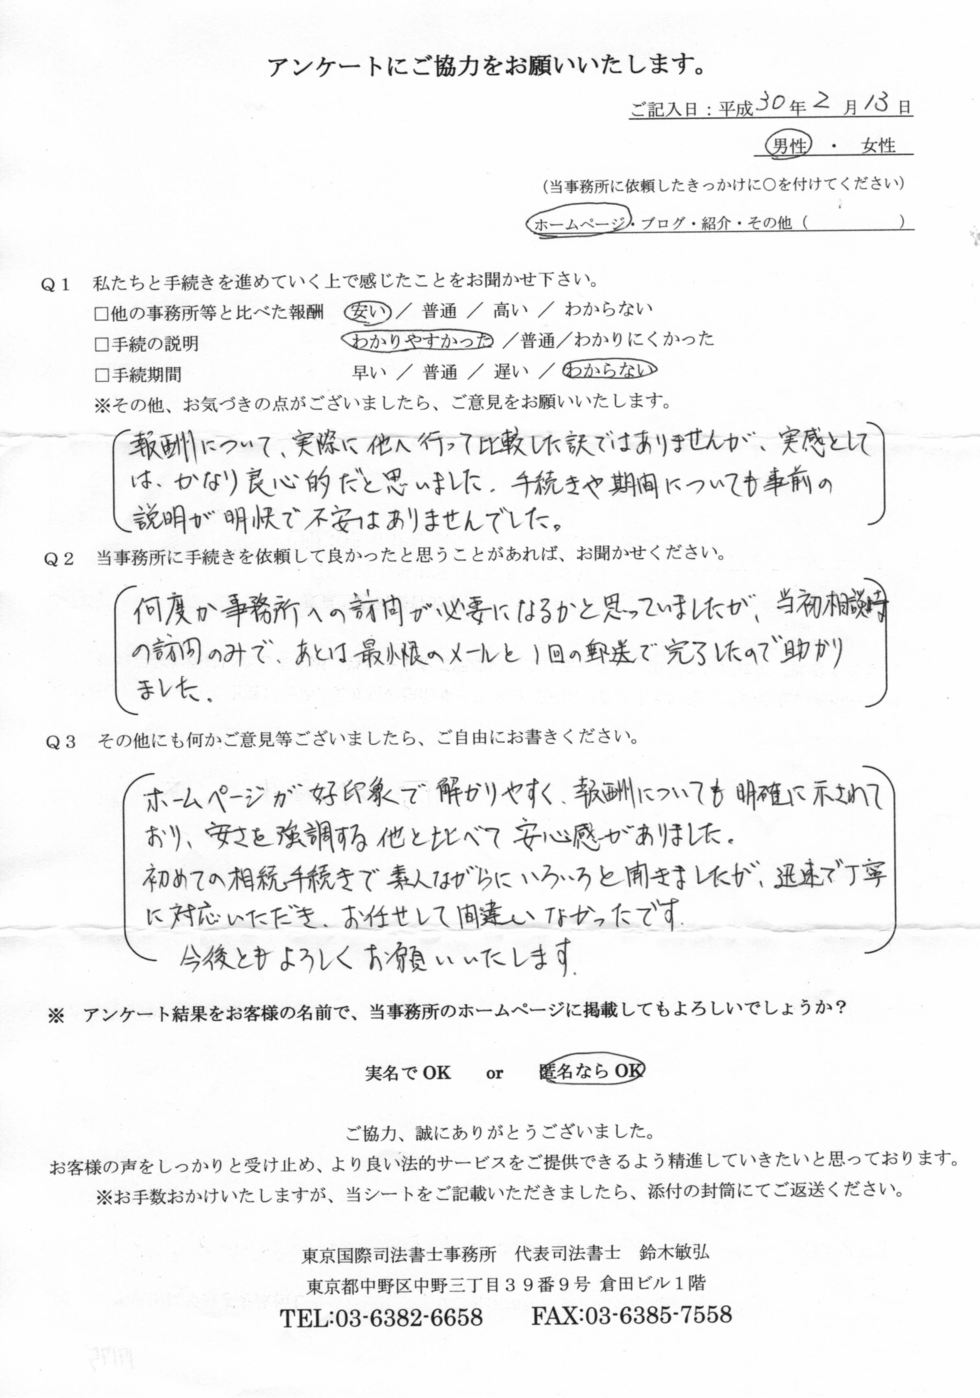 アンケートにご協力をお願いいたします。
ご記入日：平成30年2月13日
男性 ・ 女性
（当事務所に依頼したきっかけに○を付けてください）
ホームページ・ブログ・紹介・その他（　　　　　）
Q1　私たちと手続きを進めていく上で感じたことをお聞かせ下さい。
□他の事務所等と比べた報酬　安い ／ 普通 ／ 高い ／ わからない
□手続の説明　わかりやすかった ／普通／わかりにくかった
□手続期間　早い ／ 普通 ／ 遅い ／ わからない
※その他、お気づきの点がございましたら、ご意見をお願いいたします。
報酬について、実際に他へ行って比較した訳ではありませんが、実感として
は、かなり良心的だと思いました。手続きや期間についても事前の
説明が明快で不安はありませんでした。
Q2　当事務所に手続きを依頼して良かったと思うことがあれば、お聞かせください。
何度か事務所への訪問が必要になるかと思っていましたが、当初相談時
の訪問のみで、あとは最小限のメールと1回の郵送で完了したので助かり
ました。
Q3　その他にも何かご意見等ございましたら、ご自由にお書きください。
ホームページが好印象で解かりやすく、報酬についても明確に示されて
おり、安さを強調する他と比べて安心感がありました。
初めての相続手続きで素人ながらにいろいろと聞きましたが、迅速で丁寧
に対応いただき、お任せして間違いなかったです。
今後ともよろしくお願いいたします。
※　アンケート結果をお客様の名前で、当事務所のホームページに掲載してもよろしいでしょうか？
実名でOK　or　匿名ならOK
ご協力、誠にありがとうございました。
お客様の声をしっかりと受け止め、より良い法的サービスをご提供できるよう精進していきたいと思っております。
※お手数おかけいたしますが、当シートをご記載いただきましたら、添付の封筒にてご返送ください。
東京国際司法書士事務所　代表司法書士　鈴木敏弘
東京都中野区中野三丁目３９番９号 倉田ビル１階
TEL:03-6382-6658　FAX:03-6385-7558